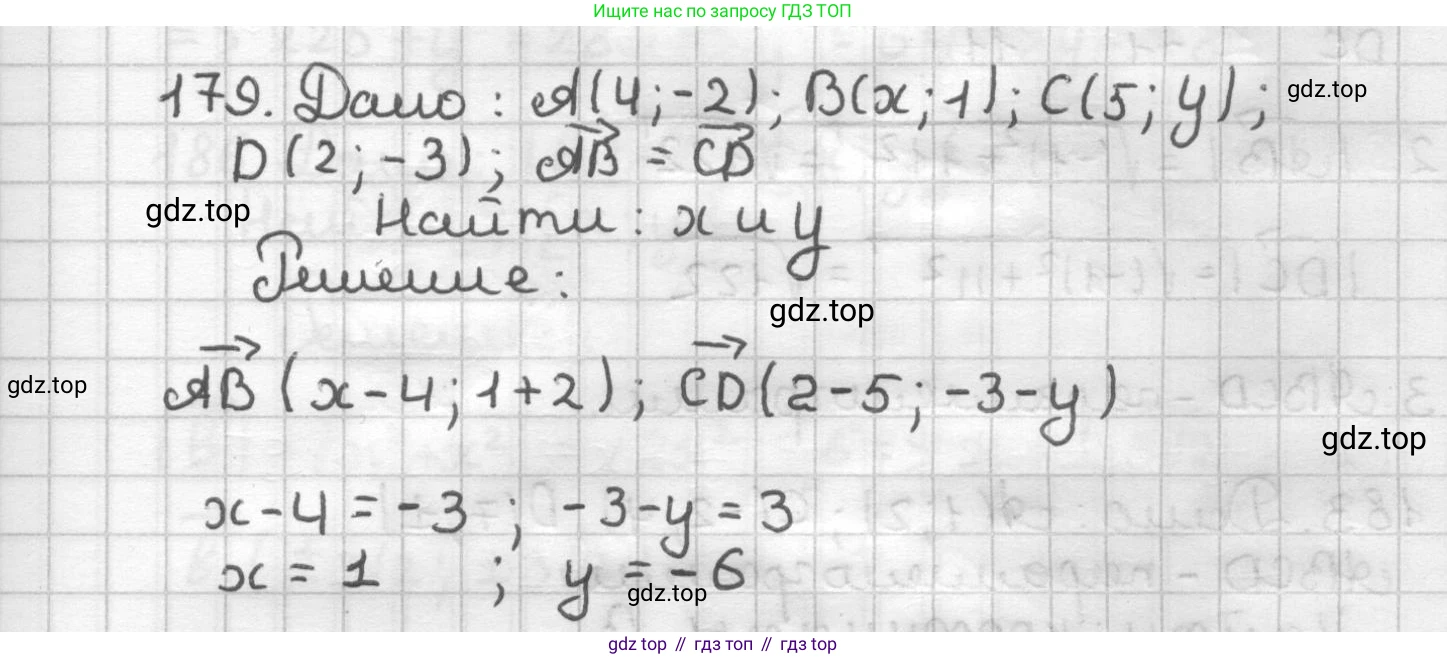 Ищите нас по запросу ГДЗ ТОП
179. Дано: A(4; -2); B(x; 1); C(5; y); gdz.top
D(2; -3); AB = CD
gdz.top Найти: x и y
Решение:
gdz.top
gdz.top AB (x-4; 1+2); CD(2-5; -3-y)
gdz.top
x-4 = -3 ; -3-y = 3
x = 1 ; y = -6
gdz.top
gdz top // гдз топ // гдз top